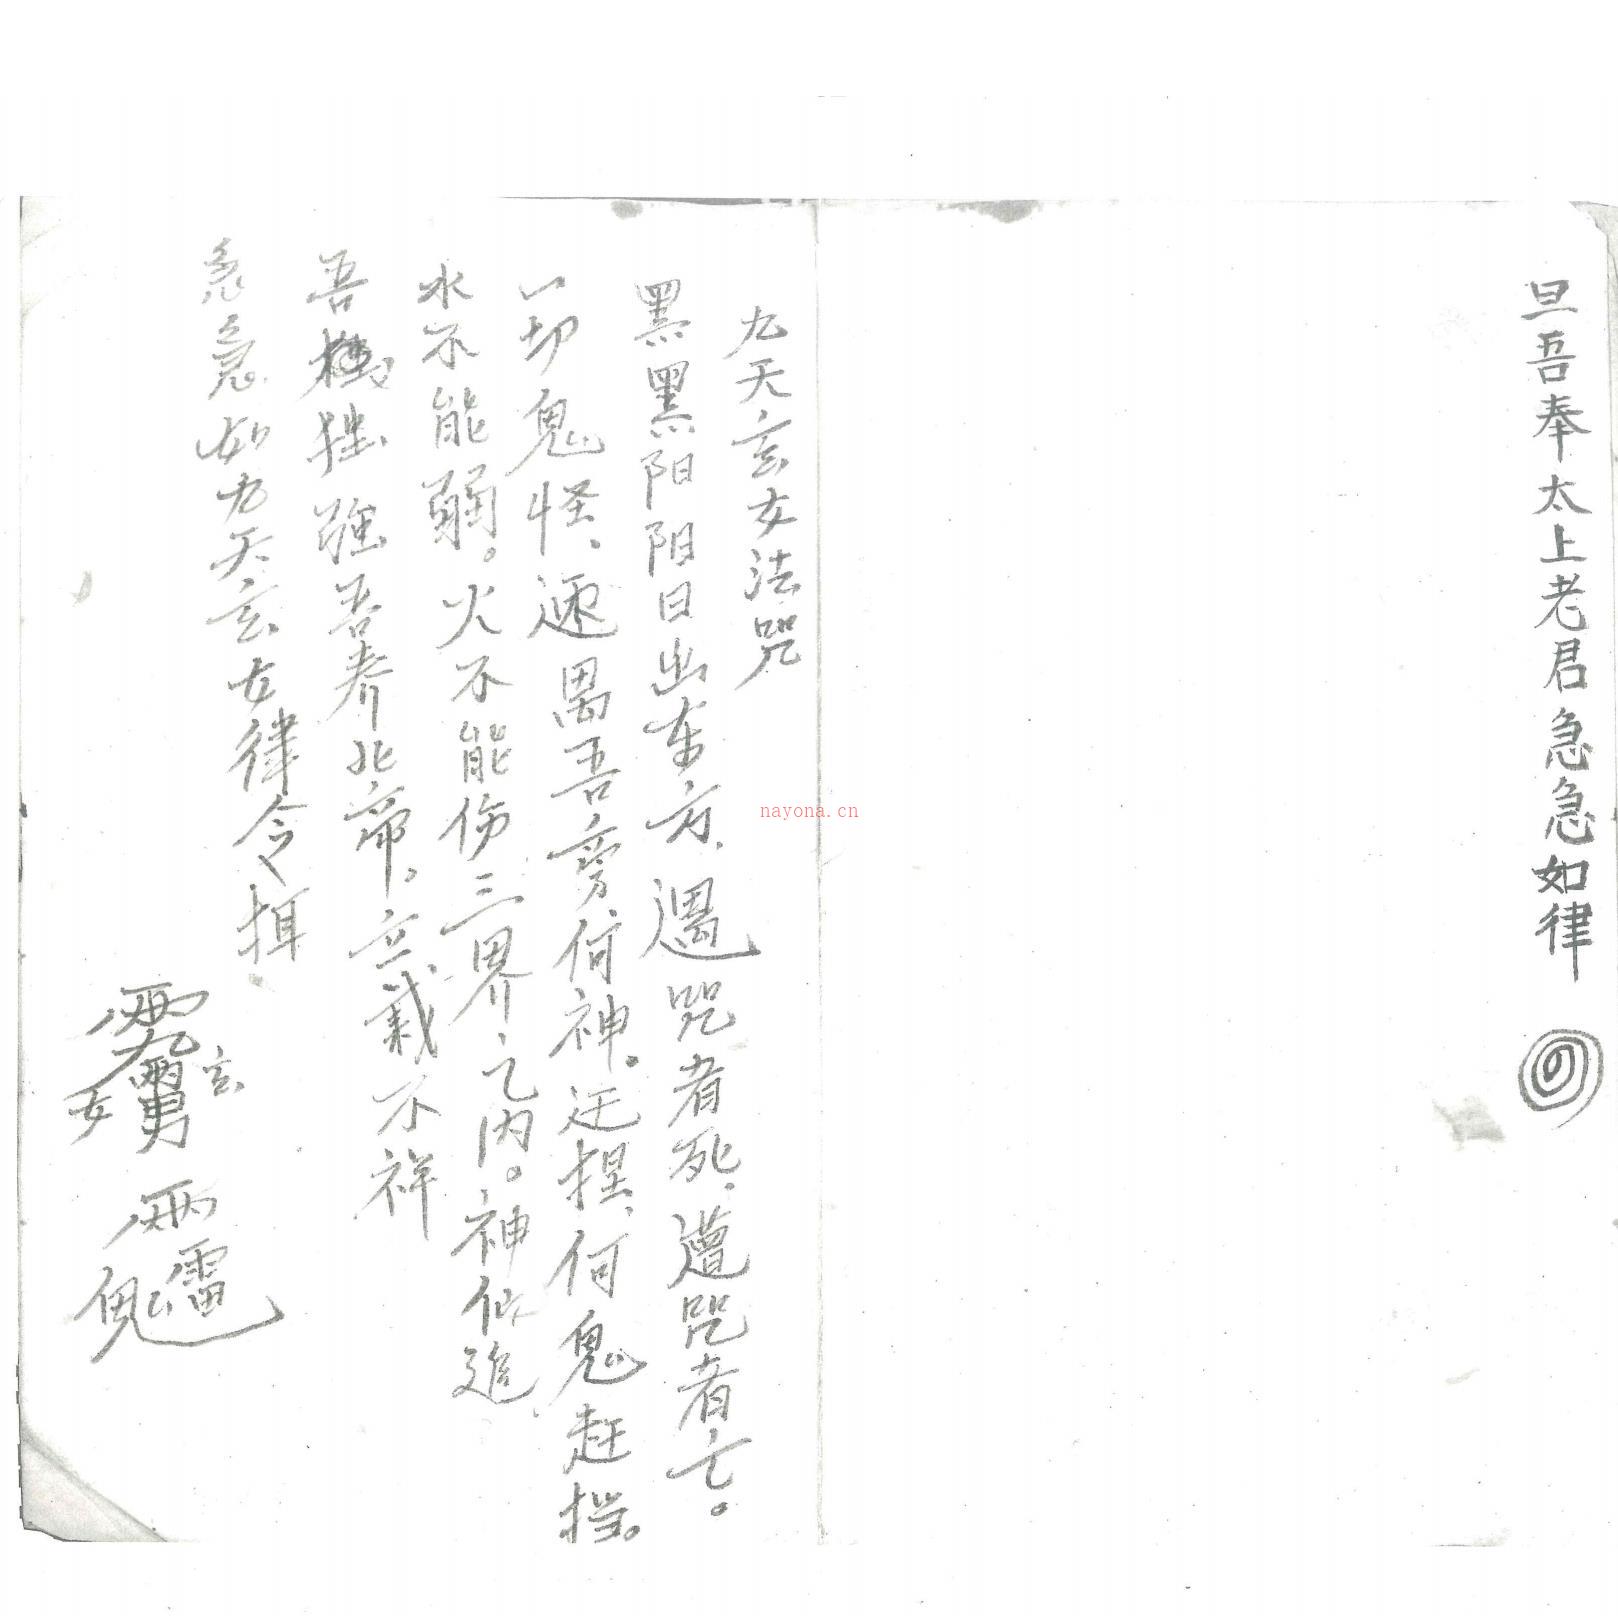 旦吾奉太上老君急急如律
九天玄女法咒
黑黑阳阳日出东方、遇咒者死、遭咒者亡。
一切鬼怪、遠离吾旁何神。廷捏、何鬼赶挡。
水不能溺。火不能伤三界之内。神仙追
吾 强吾奉北帝。立裁不祥
急急如九天玄女律令
玄女
nayona.cn